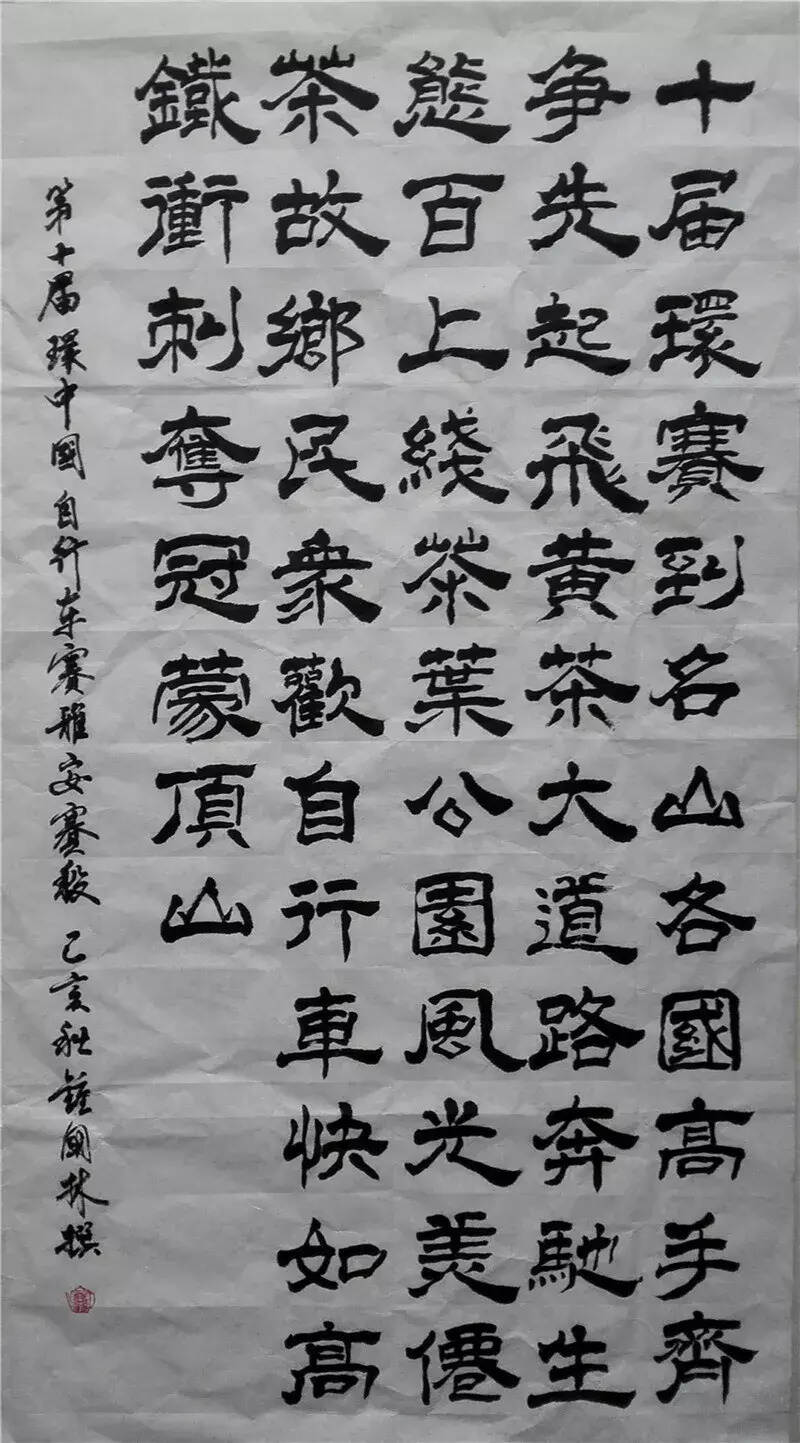 十届環賽到名山各國高手齊
争先起飛黄茶大道路奔馳生
態百上綫茶葉公園風光美僊
茶故鄉民衆歡自行車快如高
鐵衝刺奪冠蒙頂山
第十届環中國自行车賽雅安賽段 己亥秋 鍾國林撰